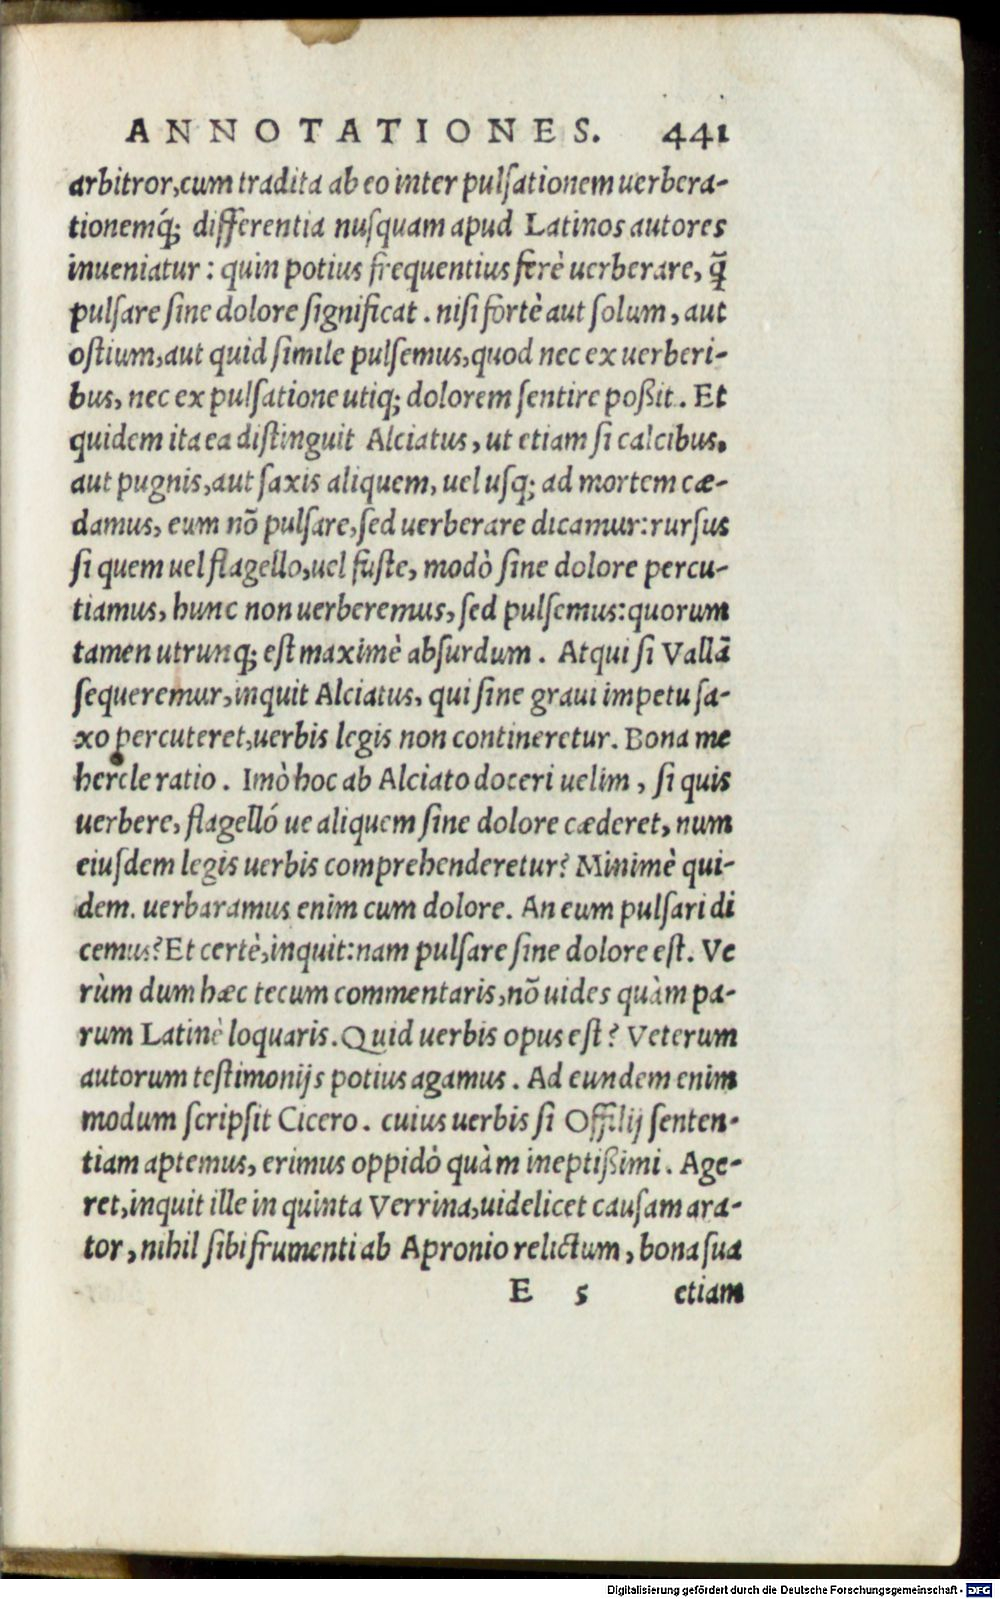 ANNOTATIONES. 441
arbitror,cum tradita ab eo inter pulſationem uerbera-
tionemq́; differentia nuſquam apud Latinos autores
inueniatur : quin potius frequentius ferè uerberare, q̃
pulſare ſine dolore ſignificat . niſi fortè aut ſolum , aut
oſtium,aut quid ſimile pulſemus,quod nec ex uerberi-
bus, nec ex pulſatione utiq; dolorem ſentire poßit. Et
quidem ita ea diſtinguit Alciatus, ut etiam ſi calcibus,
aut pugnis,aut ſaxis aliquem, uel uſq; ad mortem cæ-
damus, eum nõ pulſare,ſed uerberare dicamur:rurſus
ſi quem uel flagello,uel fuſte, modò ſine dolore percu-
tiamus, hunc non uerberemus, ſed pulſemus:quorum
tamen utrunq; eſt maximè abſurdum . Atqui ſi Vallã
ſequeremur,inquit Alciatus, qui ſine graui impetu ſa-
xo percuteret,uerbis legis non contineretur. Bona me
hercle ratio . Imò hoc ab Alciato doceri uelim , ſi quis
uerbere, flagelló ue aliquem ſine dolore cæderet, num
eiuſdem legis uerbis comprehenderetur? Minimè qui-
dem. uerbaramus enim cum dolore. An eum pulſari di
cemus? Et certè,inquit:nam pulſare ſine dolore eſt. Ve
rùm dum hæc tecum commentaris,nõ uides quàm pa-
rum Latinè loquaris. Quid uerbis opus eſt? Veterum
autorum teſtimonijs potius agamus . Ad eundem enim
modum ſcripſit Cicero. cuius uerbis ſi Offilij ſenten-
tiam aptemus, erimus oppidò quàm ineptißimi. Age-
ret,inquit ille in quinta Verrina,uidelicet cauſam ara-
tor, nihil ſibi frumenti ab Apronio relictum, bona ſua
E 5 etiam
Digitalisierung gefördert durch die Deutsche Forschungsgemeinschaft - DFG